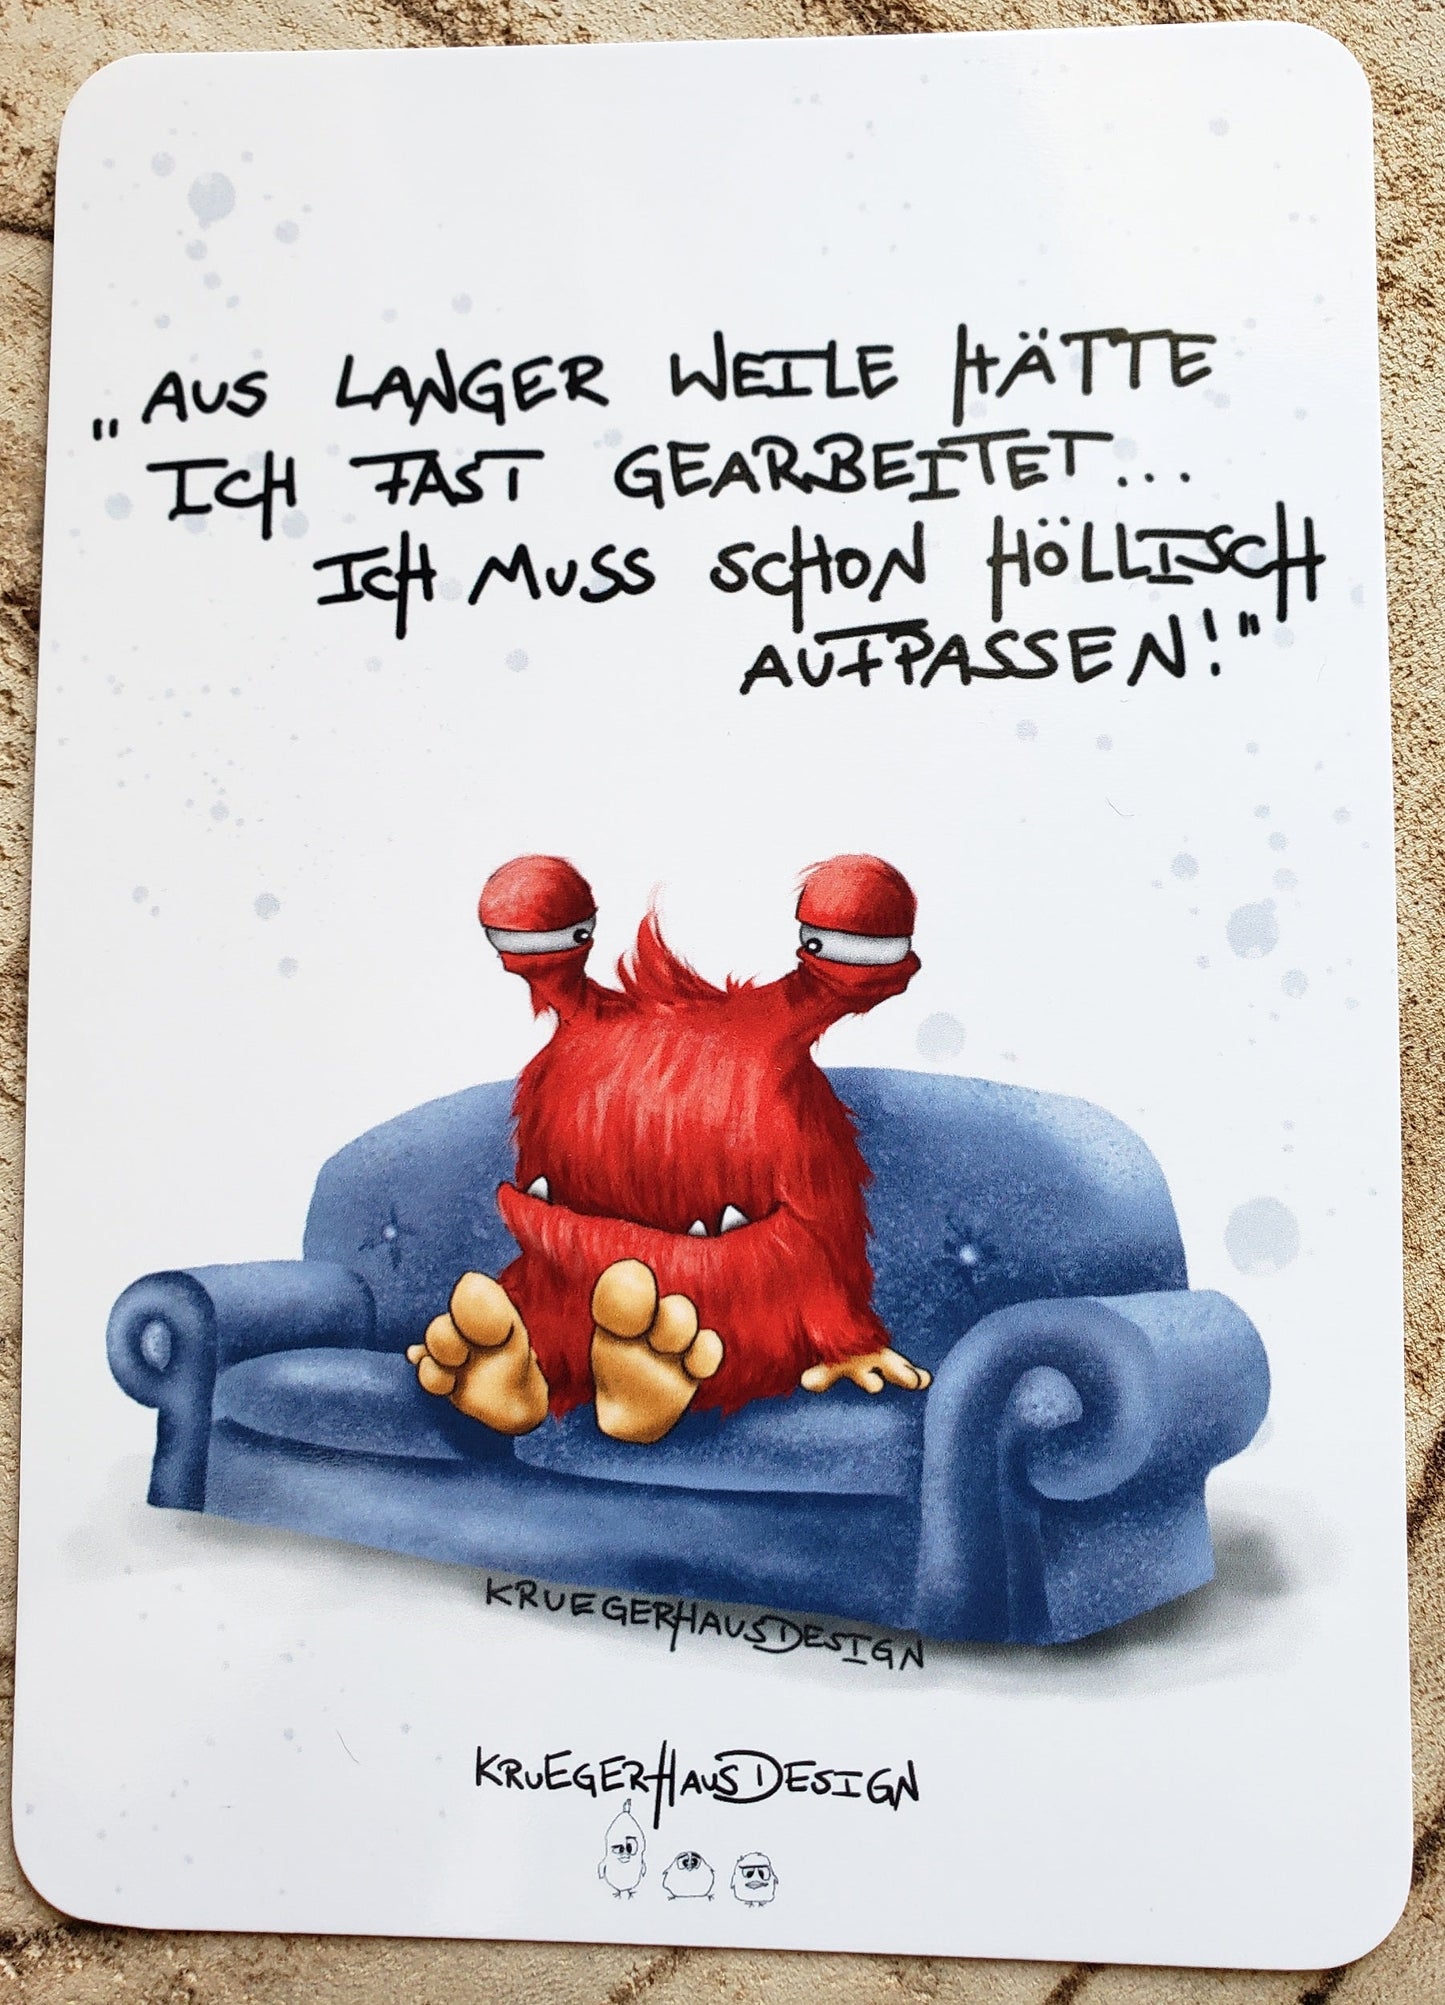 „AUS LANGER WEILE HÄTTE
ICH FAST GEARBEITET...
ICH MUSS SCHON HÖLLISCH
AUFPASSEN!"
KRUEGERHAUSDESIGN
KRUEGERHAUSDESIGN